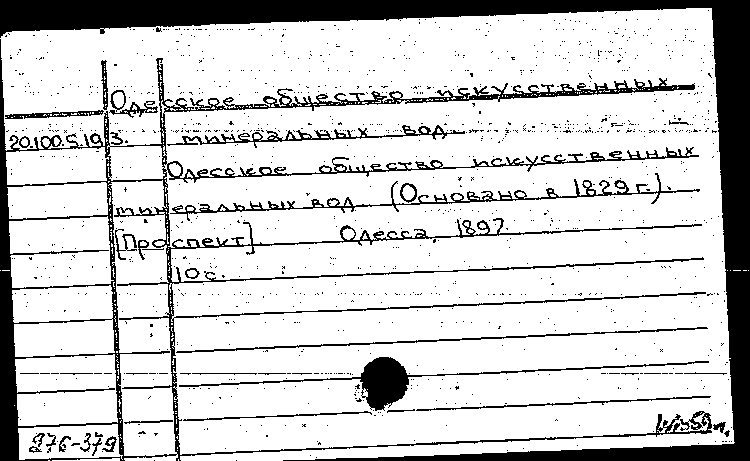 Одесское общество искусственных
20.100.5.193. минеральных вод.
Одесское общество искусственных
минеральных вод. (Основано в 1829 г.).
[Проспект]. Одесса, 1897.
10 с.
276-379